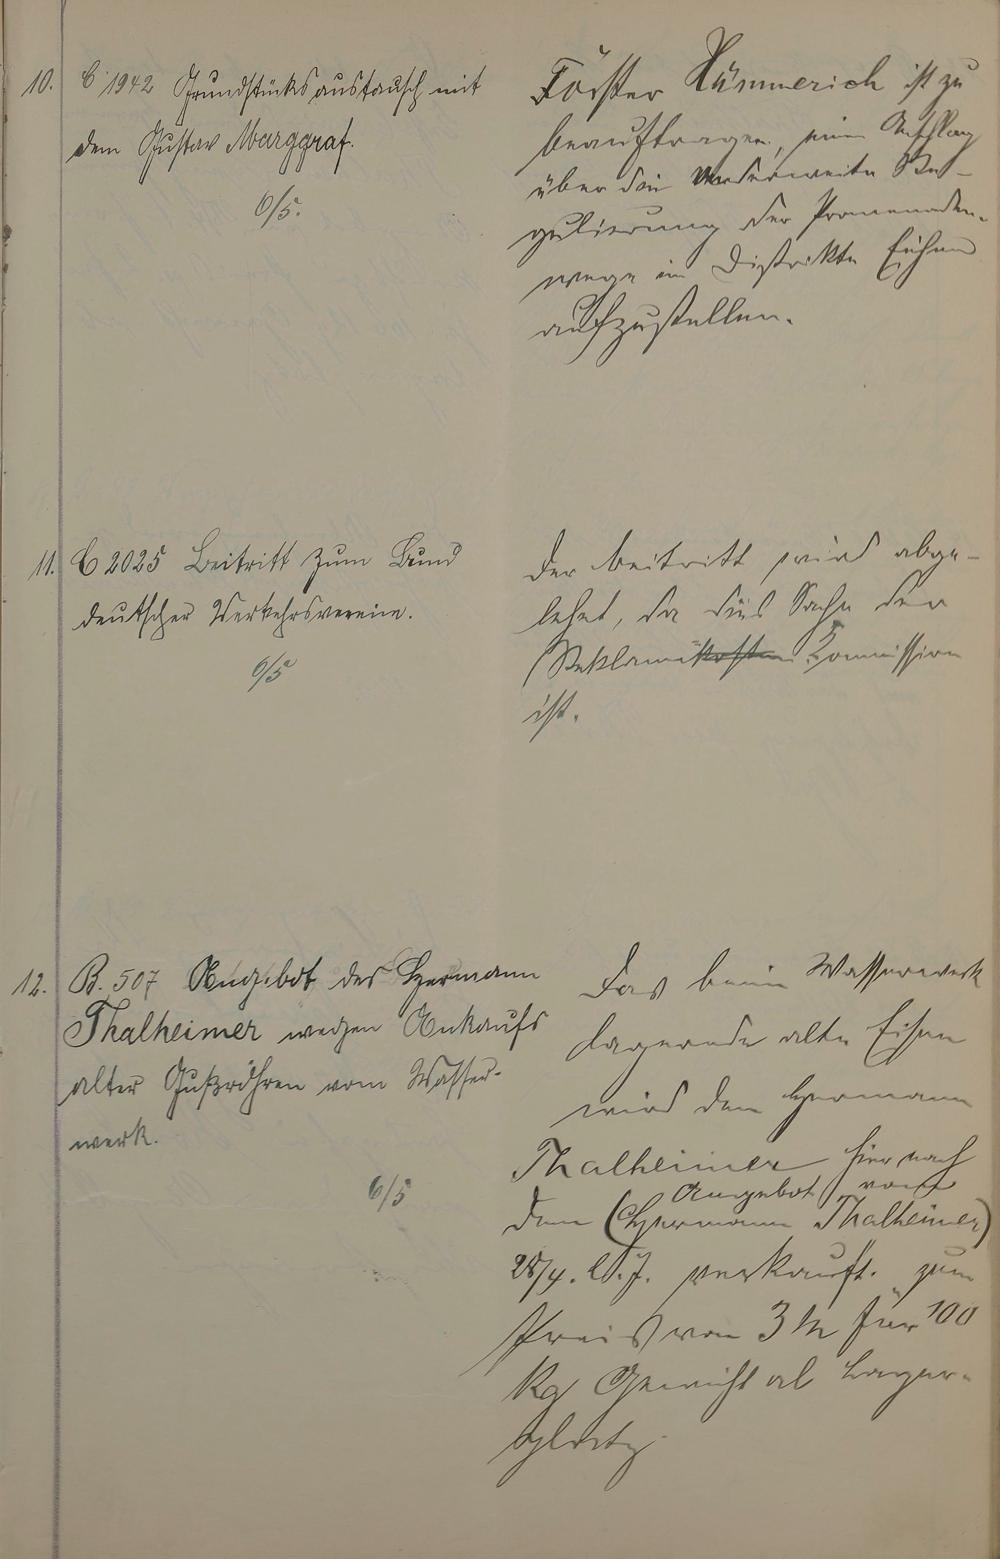 10. C 1942 Grundstücksaustausch mit
dem Gustav Marggraf.
6/5.
Förster Hümmerich ist zu
beauftragen, einen Anschlag
über die anderweite Re-
gulierung der Promenaden-
wege im Distrikte Eichen
aufzustellen.
11. C 2025 Beitritt zum Bund
deutscher Verkehrsvereine.
6/5
Der Beitritt wird abge-
lehnt, da dies Sache der
Reklamekosten Kommission
ist.
12. B. 507 Angebot des Hermann
Thalheimer wegen Ankaufs
alter Gußröhren vom Wasser-
werk.
6/5
Das beim Wasserwerk
lagernde alte Eisen
wird dem Hermann
Thalheimer hier nach
Angebot vom
dem (Hermann Thalheimer)
28/4. l. J. verkauft. zum
Preis von 3 M für 100
kg Gewicht ab Lager-
platz.